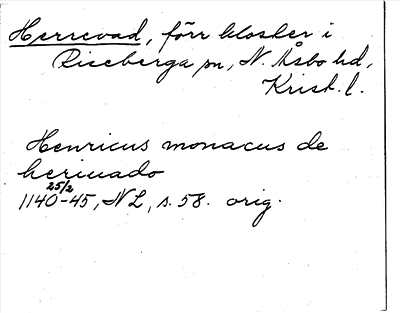 Herrevad, förr kloster i
Riseberga sn, N. Åsbo hd,
Krist. l.
Henricus monacus de
heriuado
1140 25/2 -45, NL, s. 58. orig.